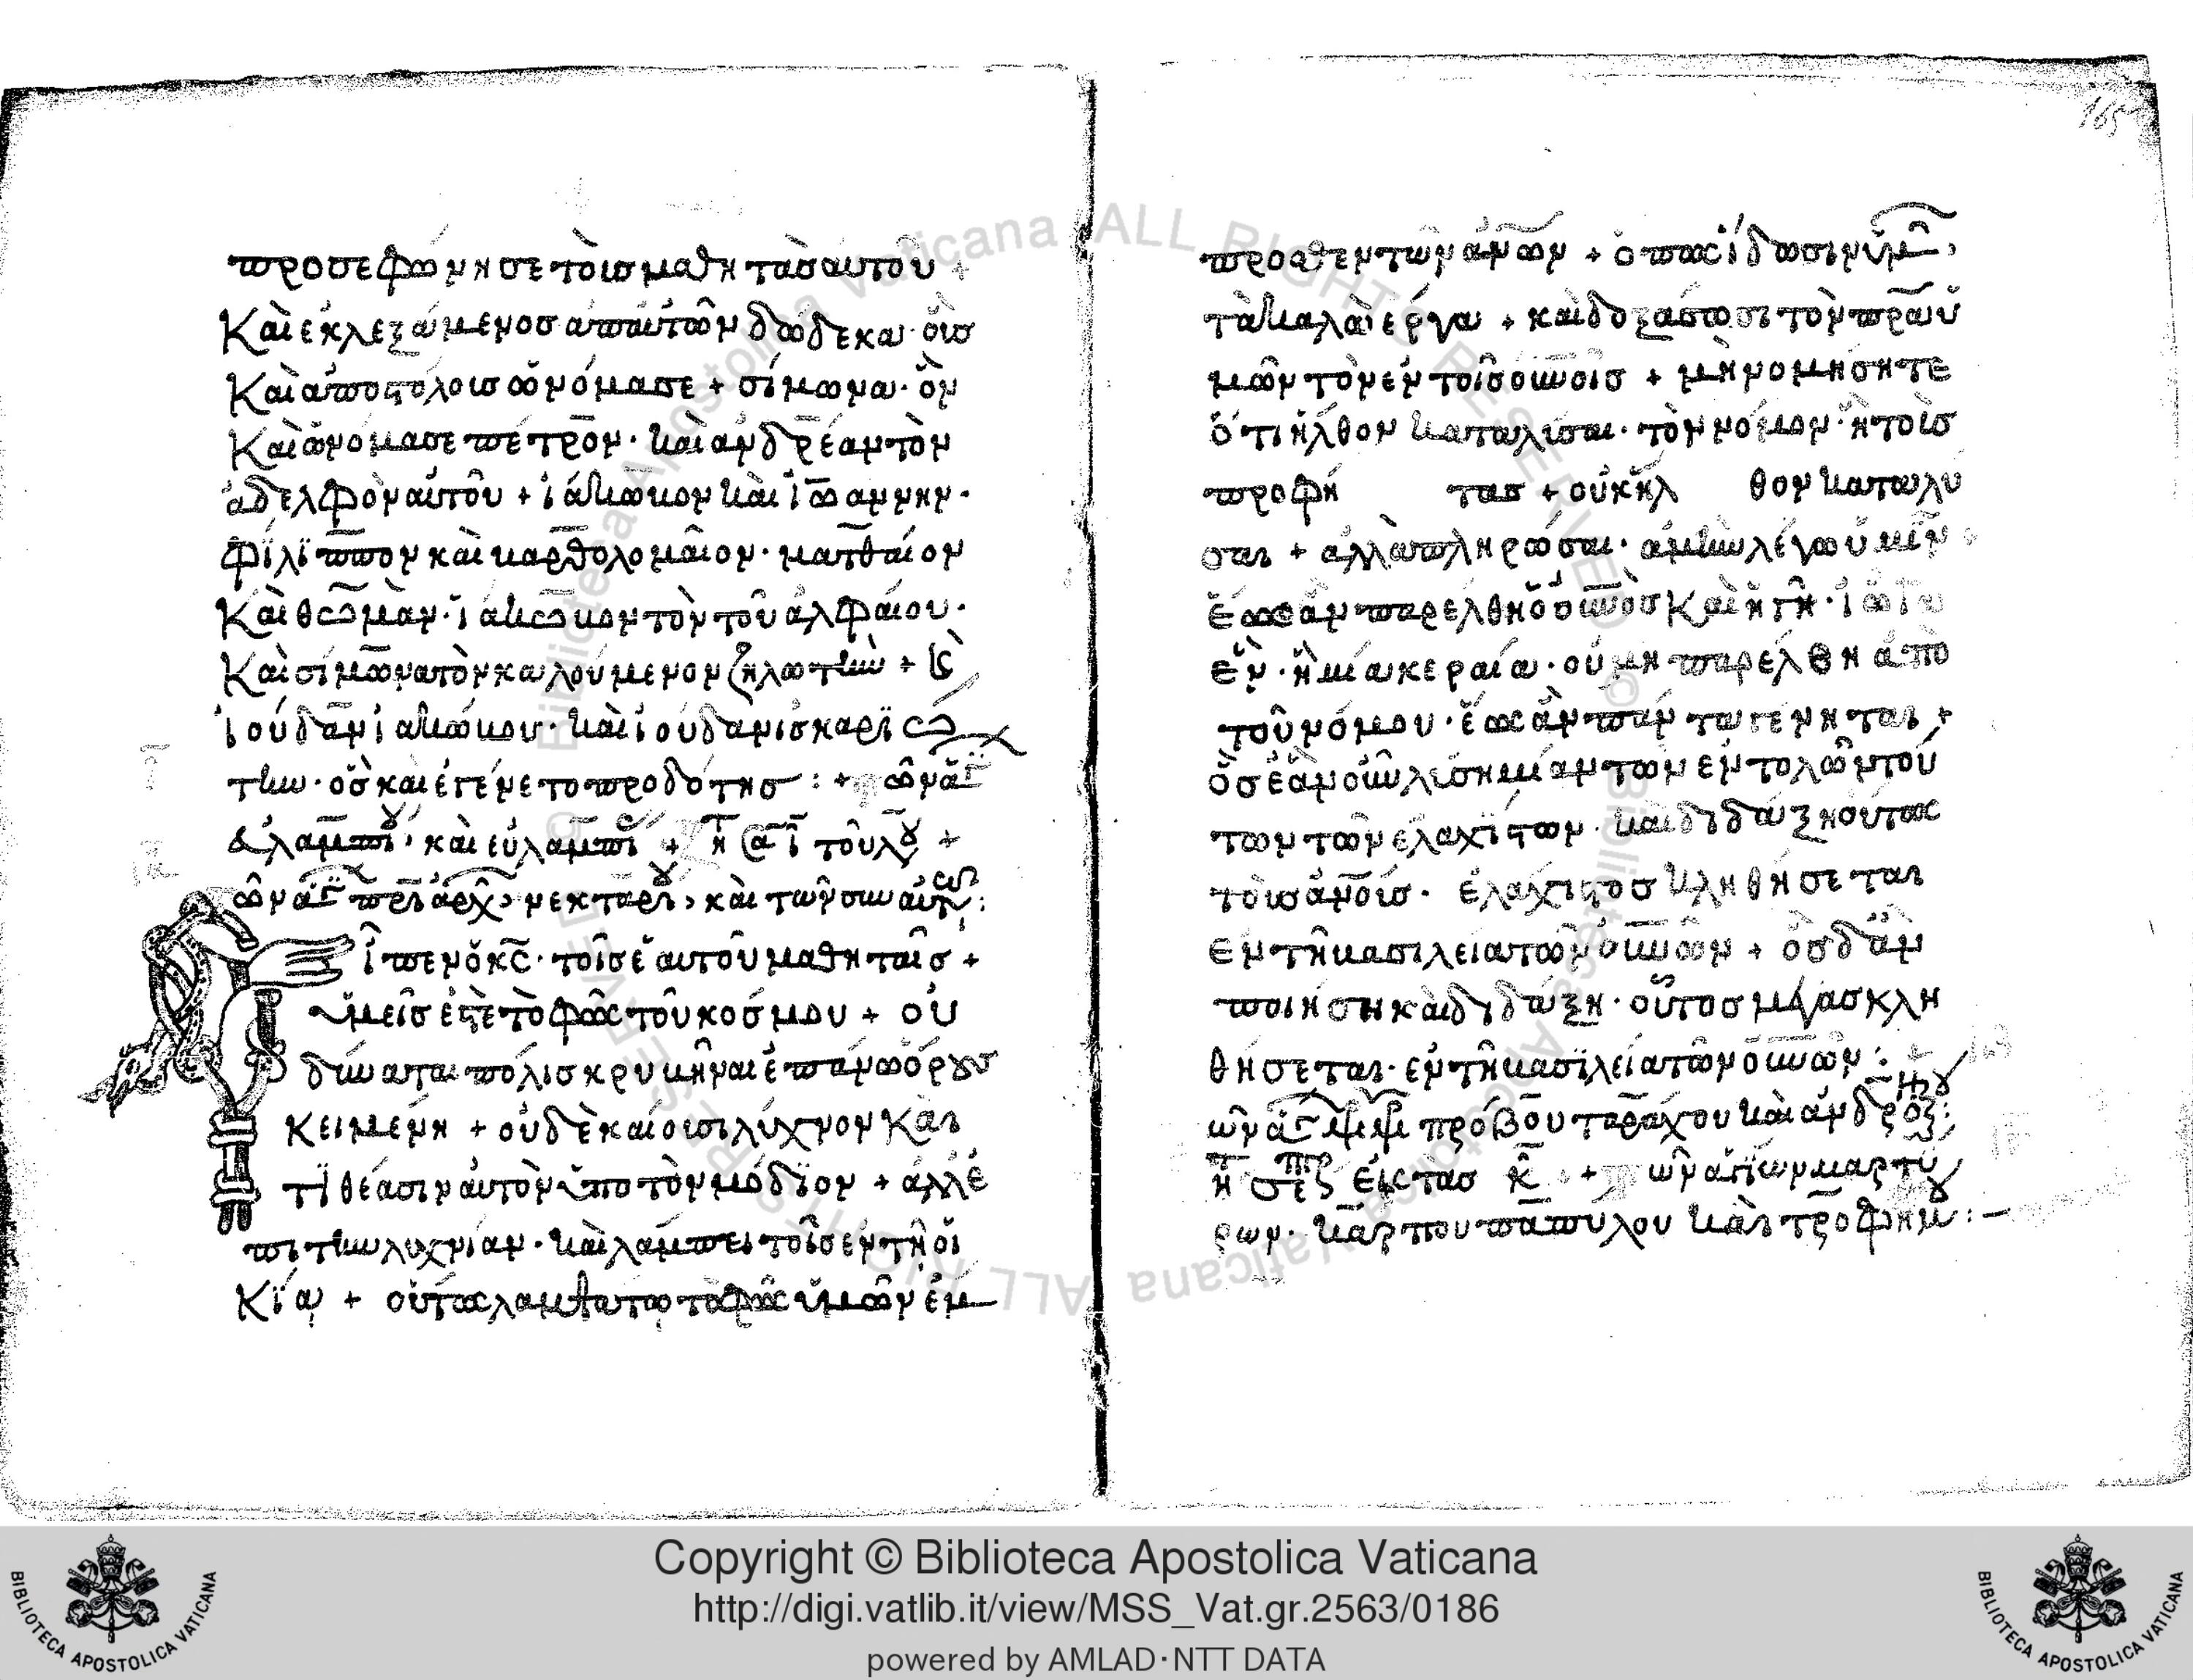 προσεφώνησε τοὶσ μαθητὰσ αυτοῦ +
Καὶ εκλεξάμενοσ απαὐτῶν δώδεκα· οὓσ
Καὶ ἀποστόλοισ ὠνόμασε + σίμωνα· ὃν
Καὶ ὠνόμασε πέτρον· καὶ ἀνδρέαν τὸν
ἀδελφὸν αὐτοῦ + ἰάκωβον καὶ ἰωαννην·
φίλιππον καὶ βαρθολομαῖον· ματθαίον
Καὶ θωμὰν· ἰάκωβον τὸν τοῦ ἀλφαίου·
Καὶ σίμωνα τὸν καλούμενον ζηλωτὴν + κ̀
ἰούδαν ἰακώβου· καὶ ἰούδαν ἰσκαριώ
την· ὃσ καὶ ἐγένετο προδότησ : +
καὶ εὐλαμπί τοῦ
νεκταρί, καὶ τῶν συν αὐτ :
Ἶπεν ὁ κσ· τοῖσ ἑαυτοῦ μαθηταῖσ +
ὑμεῖσ ἐστὲ τὸ φῶς τοῦ κοσμου + οὐ
δύναται πόλισ κρυβῆναι ἐπάνω ὄρουσ
κειμένη + οὐδὲ καίουσι λύχνον Καὶ
τϊθέασιν αυτὸν ὑπο τὸν μόδϊον + ἀλλέ
πι τὴν λυχνίαν· καὶ λάμπει τοῖσ ἐν τῆ οἰ
Κΐα + οὕτως λαμψάτω τὸ φῶς ὑμῶν ἐμ
165
προσθεν τῶν ἀνων + ὁπως ἴδωσιν ὑμ
τὰ καλὰ ἔργα + καὶ δοξάσωσι τὸν πρα ὑ
μῶν τὸν εν τοῖσ οὐνοῖσ + μὴ νομησητε
ὅτι ἦλθον καταλύσαι· τὸν νόμον· ἢ τοὺσ
προφή τασ + οὐκ ἦλ θον καταλύ
σαι + ἀλλὰ πληρῶσαι· ἀμὴν λέγω ὑμῖν
ἕως ἀν παρέλθη ὁ οὐνὸσ Καὶ ἡ γῆ· ἰῶτα
ἓν· ἢ μία κεραία· οὐ μη παρέλθη ἀπὸ
τοῦ νόμου· ἕως ἂν παντα γένηται +
ὃσ ἐὰν οὖν λύση μίαν των εντολῶν τού
των τῶν ἐλαχίστων· καὶ διδάξη οὕτως
τοὺσ ἀνοὺσ· ἐλάχιστοσ κληθήσεται
εν τῆ βασιλεία τῶν οὐνῶν + ὃσ δἂν
ποιήση καὶ διδάξη· οὗτοσ μέγασ κλη
θήσεται· εν τῆ βασϊλεία τῶν οὐνῶν :
πρόβου ταράχου καὶ ἀνδρο :
εἰς τὰσ κ + ἁγίων μαρτύ
ρων· κάρπου παπύλου καὶ τροφήμ : –
Copyright © Biblioteca Apostolica Vaticana
http://digi.vatlib.it/view/MSS_Vat.gr.2563/0186
powered by AMLAD·NTT DATA
BIBLIOTECA APOSTOLICA VATICANA
BIBLIOTECA APOSTOLICA VATICANA